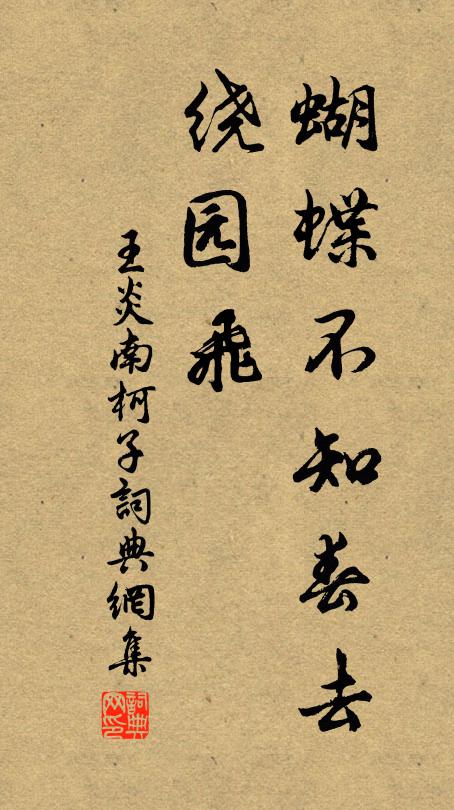 蝴蝶不知春去
绕园飞
王炎南柯子詞典網集
詞典
网印